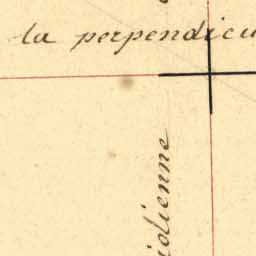 la perpendicu
idienne